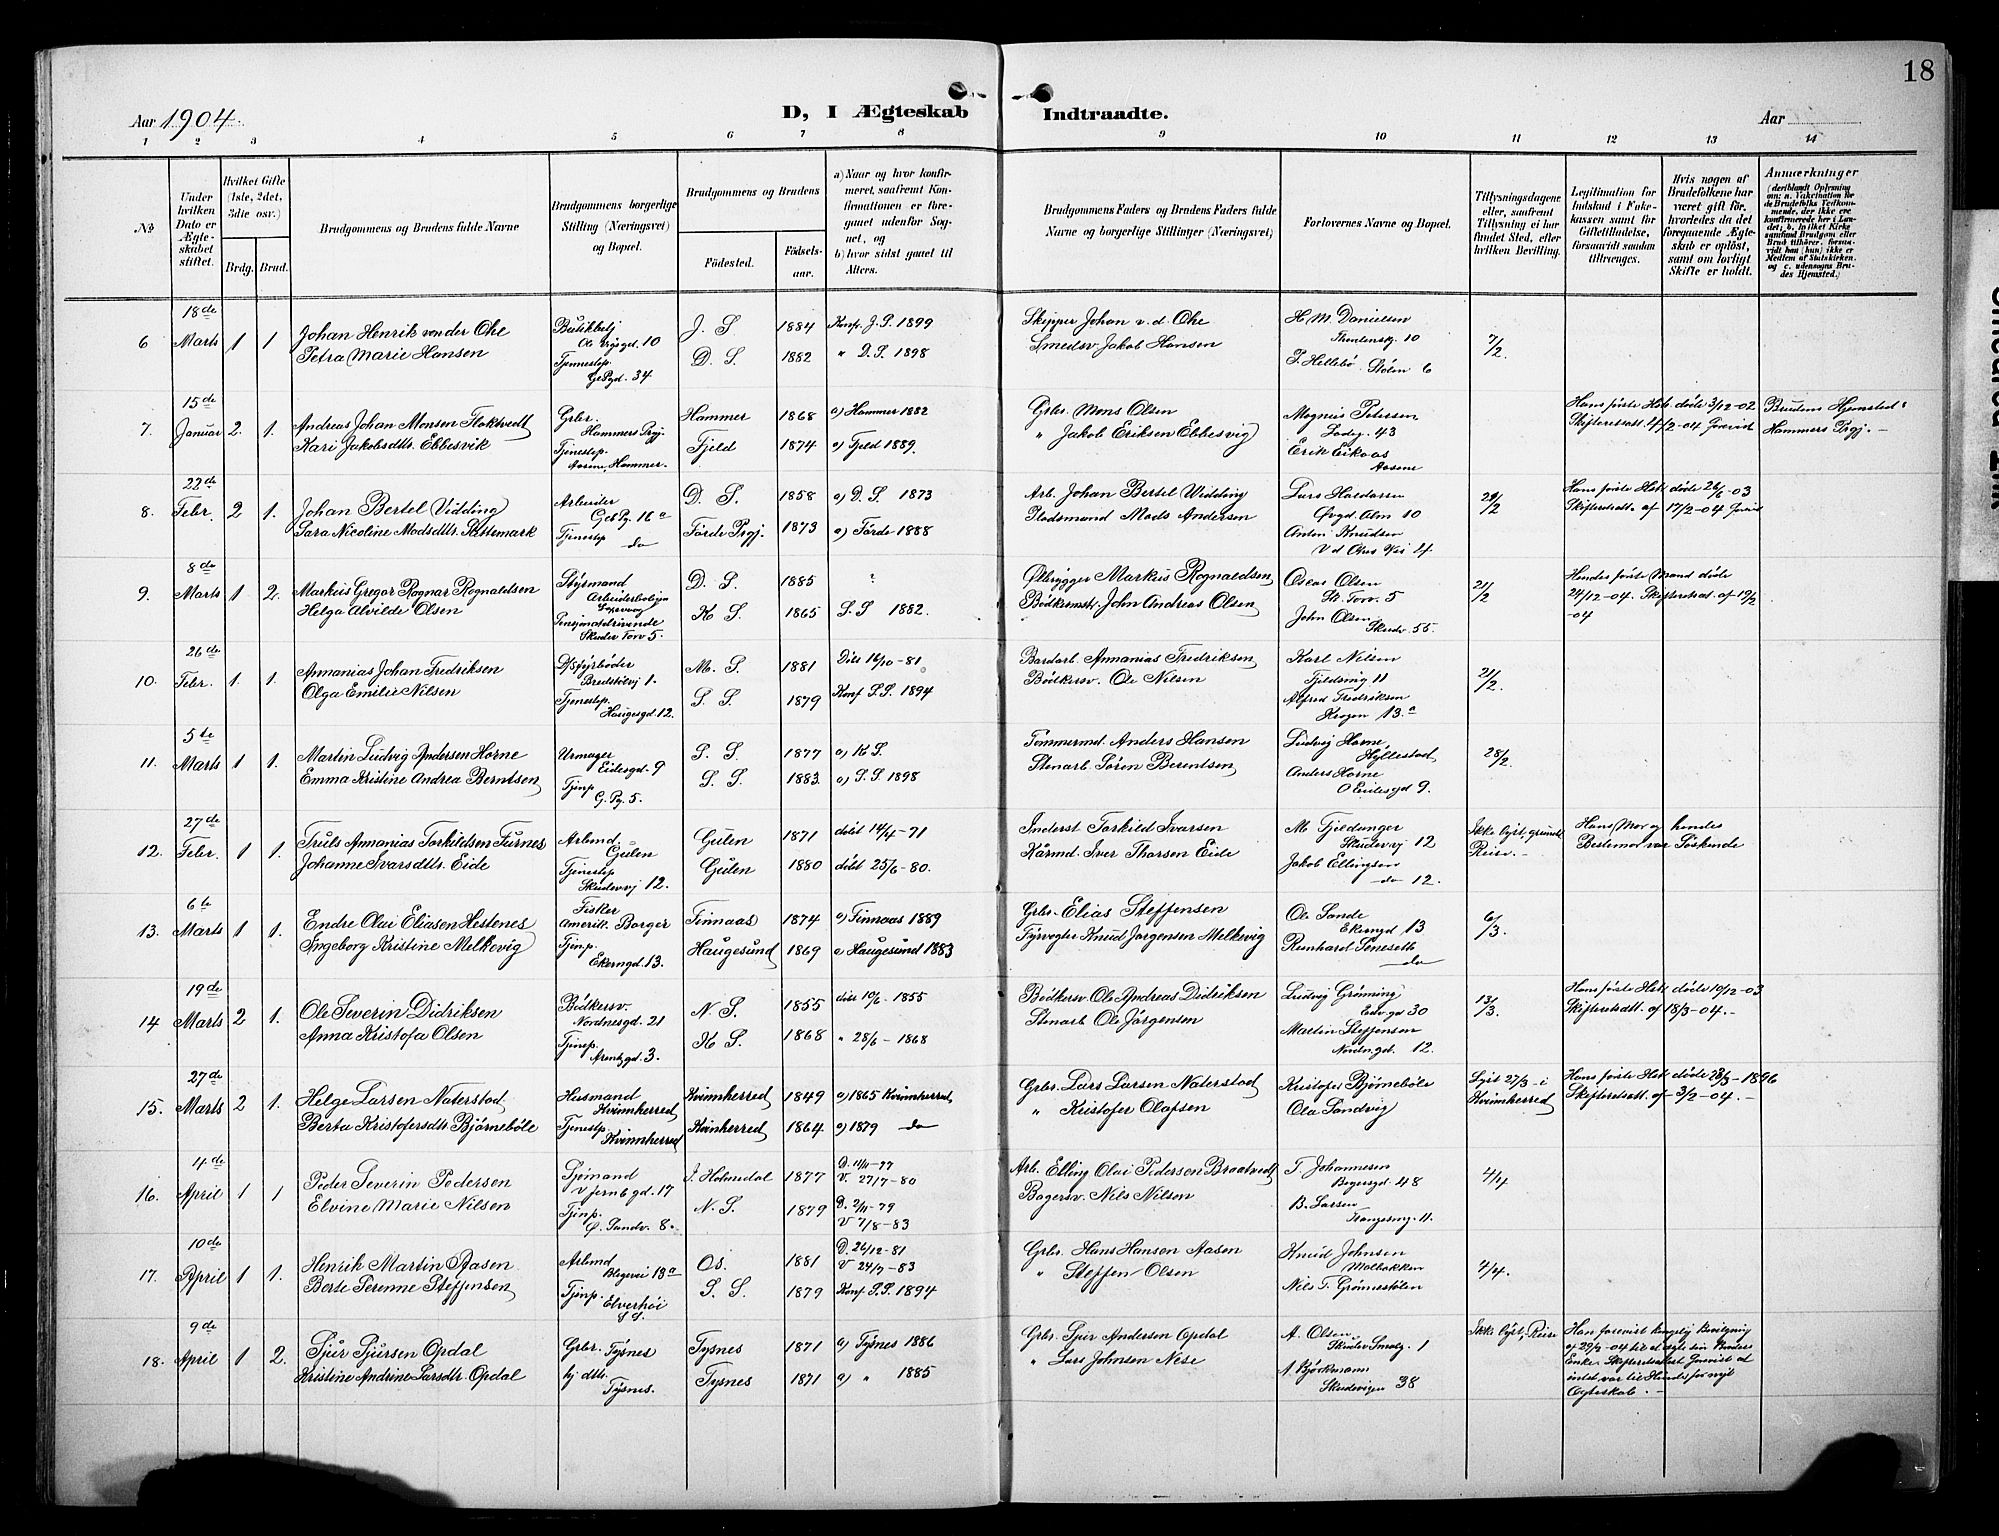 18
Aar 1904.
D, I Ægteskab Indtraadte.
Aar
1 2 3 4 5 6 7 8 9 10 11 12 13 14
No
Under hvilken Dato er Ægteskabet stiftet.
Hvilket Gifte (1ste, 2det, 3die osv.)
Brdg. Brud.
Brudgommens og Brudens fulde Navne
Brudgommens borgerlige Stilling (Næringsvei) og Bopæl.
Brudgommens og Brudens
Fødested. Fødselsaar.
a) Naar og hvor konfirmeret, saafremt Konfirmationen er foregaaet udenfor Sognet, og
b) hvor sidst gaaet til Alters.
Brudgommens Faders og Brudens Faders fulde Navne og borgerlige Stillinger (Næringsvei)
Forlovernes Navne og Bopæl.
Tillysningsdagene eller, saafremt Tillysning ei har fundet Sted, efter hvilken Bevilling.
Legitimation for Indskud i Enkekassen samt for Giftetilladelse, forsaavidt saadan tiltrænges.
Hvis nogen af Brudefolkene har været gift før, hvorledes da det foregaaende Ægteskab er opløst, samt om lovligt Skifte er holdt.
Anmærkninger
6 18de Marts 1 1
Johan Henrik von der Ohe
Petra Marie Hansen
Butikbetj
10
Tjenestep.
34
J. S 1884 Konf. J. S. 1899
D. S. 1882 " D. S. 1898
Skipper Johan v. d. Ohe
Smedsv Jakob Hansen
H. M. Danielsen
10
J. Hillebø Stølen 6
7/2
7. 15de Januar 2. 1.
Andreas Johan Monsen Floktvedt
Kari Jakobsdtr. Ebbesvik
Grbr. Hammers Prgj.
Tjenestep. Aasene, Hammer.
Hammer 1868 a) Hammer 1882
Fjeld 1874 a) Fjeld 1889.
Grbr. Mons Olsen
" Jakob Eriksen Ebbesvig
Magnus Petersen
43
Erik Eikaas
Aasene
Hans første Hst. døde 3/12-02
Skifteretsatt. 4/2-04 forevist
Brudens Hjemsted:
Hammers Prgj.-
8. 22de Febr. 2 1.
Johan Bertel Vidding
Sara Nicoline Madsdtr. Rettemark
Arbeider
16 a
Tjenestep do
D. S. 1858 a) D. S. 1873
Førde Prgj. 1873 a) Førde 1888
Arb. Johan Bertel Widding
Pladsmand Mads Andersen
Lars Haldorsen
Øvgd. Alm 10
Anton Knudsen
V d Ohes Vei 4
21/2
Hans første Hst. døde 26/6-03
Skifteretsatt. af 17/2-04 forevist
9. 8de Marts 1 2.
Markus Gregor Ragnar Rognaldsen
Helga Alvilde Olsen
Styrmand
Pensjonatdrivende
Skuder Torv 5.
D. S. 1885 "
K S. 1865 S. S 1882.
Ølbrygger Markus Rognaldsen
Bødkermstr. John Andreas Olsen
Oscar Olsen
St. Torv. 5
John Olsen
Skudev. 55.
21/2
Hendes første Mand døde
24/12-04. Skifteretsatt. af 19/2
-04
10. 26de Febr. 1. 1.
Annanias Johan Fredriksen
Olga Emilie Nilsen
D/Sfyrbøder
1.
Tjenestep.
Haugesgd. 12.
M. S. 1881 Døbt 16/10-81
S. S. 1879 Konf S. S. 1894
Bardarb. Annanias Fredriksen
Bødkersv. Ole Nilsen
Karl Nilsen
Fjeldsvig 11
Alfred Fredriksen
Krogen 13.a
21/2.
11. 5te Marts 1 1.
Martin Ludvig Andersen Horne
Emma Kristine Andrea Berntsen
Urmager
Eidesgd. 9
Tjenp
G. Pg. 5.
S. S. 1877 a) K S.
S. S. 1883. a) S. S 1898
Tømmermd. Anders Hansen
Stenarb. Søren Berentsen
Ludvig Horne
Hyllestad
Anders Horne
O Eidesgd 9.
28/2.
12. 27de Febr. 1 1.
Truls Annanias Torkildsen Furnes
Johanne Ivarsdtr. Eide
Arbmd Gulen
Tjenestep
Skudevvj 12.
Gulen 1871 døbt 14/4-71
Gulen 1880 døbt 25/6-80.
Inderst Torkild Ivarsen
Kårmd. Iver Thorsen Eide
M Tjeldanger
Skudevvj 12
Jakob Ellingsen
do 12.
Ikke lyst, grundet
Reise.-
Hans Mor og hendes
Bestemor var Søskende
13. 6te Marts 1 1.
Endre Olai Eliasen Hestenes
Ingeborg Kristine Melkevig
Fisker
Amerik. Borger
Tjinp.
Ekerngd. 13.
Finnaas 1874 a) Finnaas 1889
Haugesund 1869 a Haugesund 1883
Grbr. Elias Steffensen
Fyrvogter Knud Jørgensen Melkevig
Ole Sande
Ekerngd 13
do
6/3.
14 19de Marts 2 1.
Ole Severin Didriksen
Anna Kristofa Olsen
Bødkersv.
Nordnesgd. 21
Tjinsp.
Arentzgd. 3.
N. S. 1855 døbt 10/6-1855
K S. 1868 " 28/6-1868
Bødkersv. Ole Andreas Didriksen
Stenarb Ole Jørgensen
Ludvig Grønning
30
Martin Steffensen
Nordn.gd. 12.
13/3.
Hans første Hst. døde 19/12-03
Skifteretsatt. af 18/3-04.-
15. 27de Marts 2 1.
Helge Larsen Naterstad
Berta Kristofersdtr. Bjørnebøle
Husmand
Kvinnherred
Tjenestp.
Kvinnherred
Kvinnherred 1849 a) 1865 Kvinnherred
Kvinherred 1864 a) 1879 do
Grbr. Lars Larsen Naterstad
" Kristofer Olafsen
Kristofer Bjørnebøle
Ola Sandvig
Lyst 27/3-i
Kvinnherred
Hans første Hst. døde 28/3-1896
Skifteretsatt. af 3/2-04.-
16. 4de April 1 1
Peder Severin Pedersen
Elvine Marie Nilsen
Sjømand
v Jernb gd. 17
Tjinp.
Ø. Sandv. 8.
Y. Holmedal 1877 D. 11/11-77
V. 27/7-80
N. S. 1879 D. 2/11-79
V 7/8-83
Arb. Elling Olai Pedersen Braatvedt
Bagersv. Nils Nilsen
T. Johannesen
Bøgersgd. 48
B. Larsen
Frangesmg. 11.
4/4
17. 10de April 1 1.
Henrik Martin Aasen
Berte Serenne Steffensen
Arbmd
Blegevei 13 a
Tjinp. Elverhøi
Os. 1881 D. 26/12-81
V 24/7-83
S. S. 1879 Konf. S. S. 1894
Grbr. Hans Hansen Aasen
" Steffen Olsen
Knud Johnsen
Mølbakken
Nils T. Grønnestølen
4/4.
18. 9de April 1 2.
Sjur Sjursen Opdal
Kristine Andrine Larsdtr. Opdal
Grbr. Tysnes
hj dtr.
Tysnes.
Tysnes 1871 a) Tysnes 1886
Tysnes 1871 a) " 1885
Grbr. Sjur Andersen Opdal
" Lars Johnsen Nese
A. Olsen
Skudev Smalg. 1
A. Bjørkmann
Skudevigen 38
Ikke lyst, Reise
Han forevist kongelig Bevilgning
af 29/3-04 til at ægte sin Broders
Enke. Skifteretsatt. forevist at
intet var til Hinder for nyt
Ægteskab.-